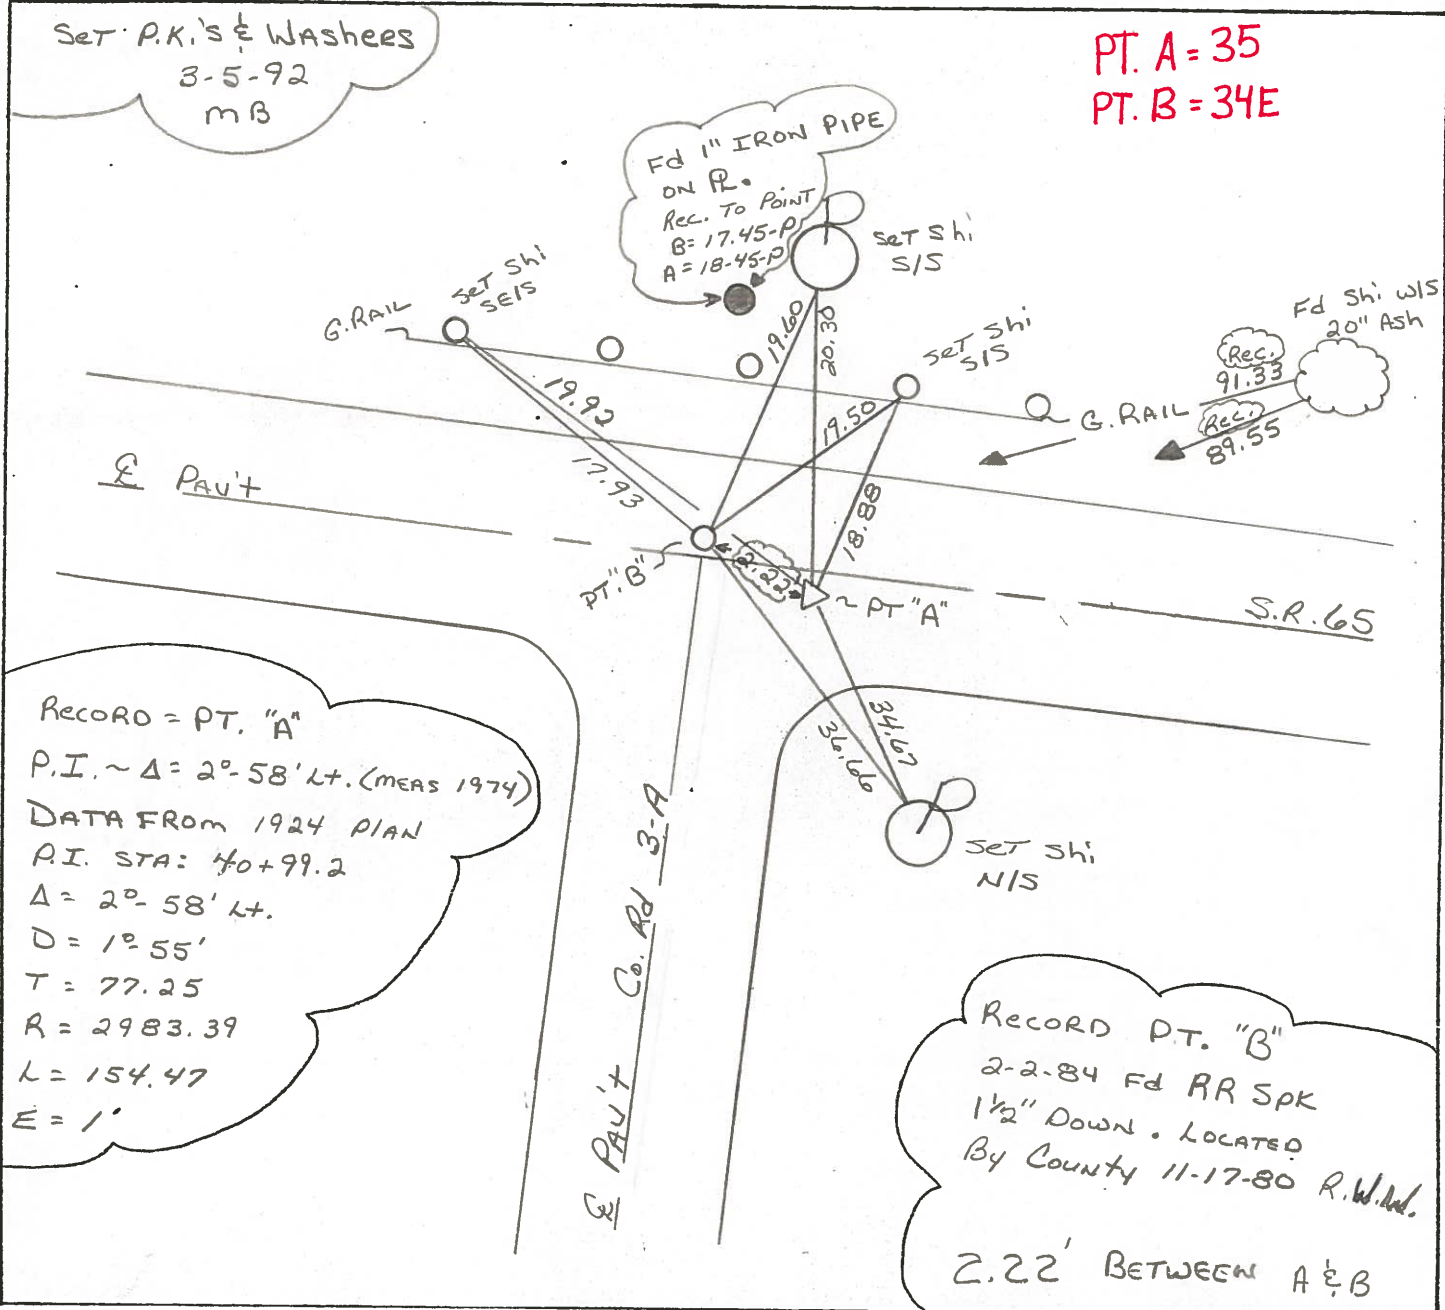 SET P.K.'S & WASHERS
3-5-92
MB
PT. A = 35
PT. B = 34E
Fd 1" IRON PIPE
ON PL.
REC. TO POINT
B = 17.45-P
A = 18-45-P
SET Shi
S/S
SET Shi
SE/S
G.RAIL
SET Shi
S/S
Fd Shi W/S
20" ASH
Rec.
91.33
Rec.
89.55
G. RAIL
19.60
20.30
19.92
17.93
19.50
18.88
℄ PAV't
PT. "B"
2.22
PT "A"
S.R. 65
36.66
34.67
SET Shi
N/S
RECORD = PT. "A"
P.I. ~ Δ = 2°-58' Lt. (MEAS 1974)
DATA FROM 1924 PLAN
P.I. STA: 40+99.2
Δ = 2°-58' Lt.
D = 1°-55'
T = 77.25
R = 2983.39
L = 154.47
E = 1'
℄ PAV't Co. Rd 3-A
RECORD P.T. "B"
2-2-84 Fd RR SPK
1½" DOWN. LOCATED
By COUNTY 11-17-80
2.22' BETWEEN A & B